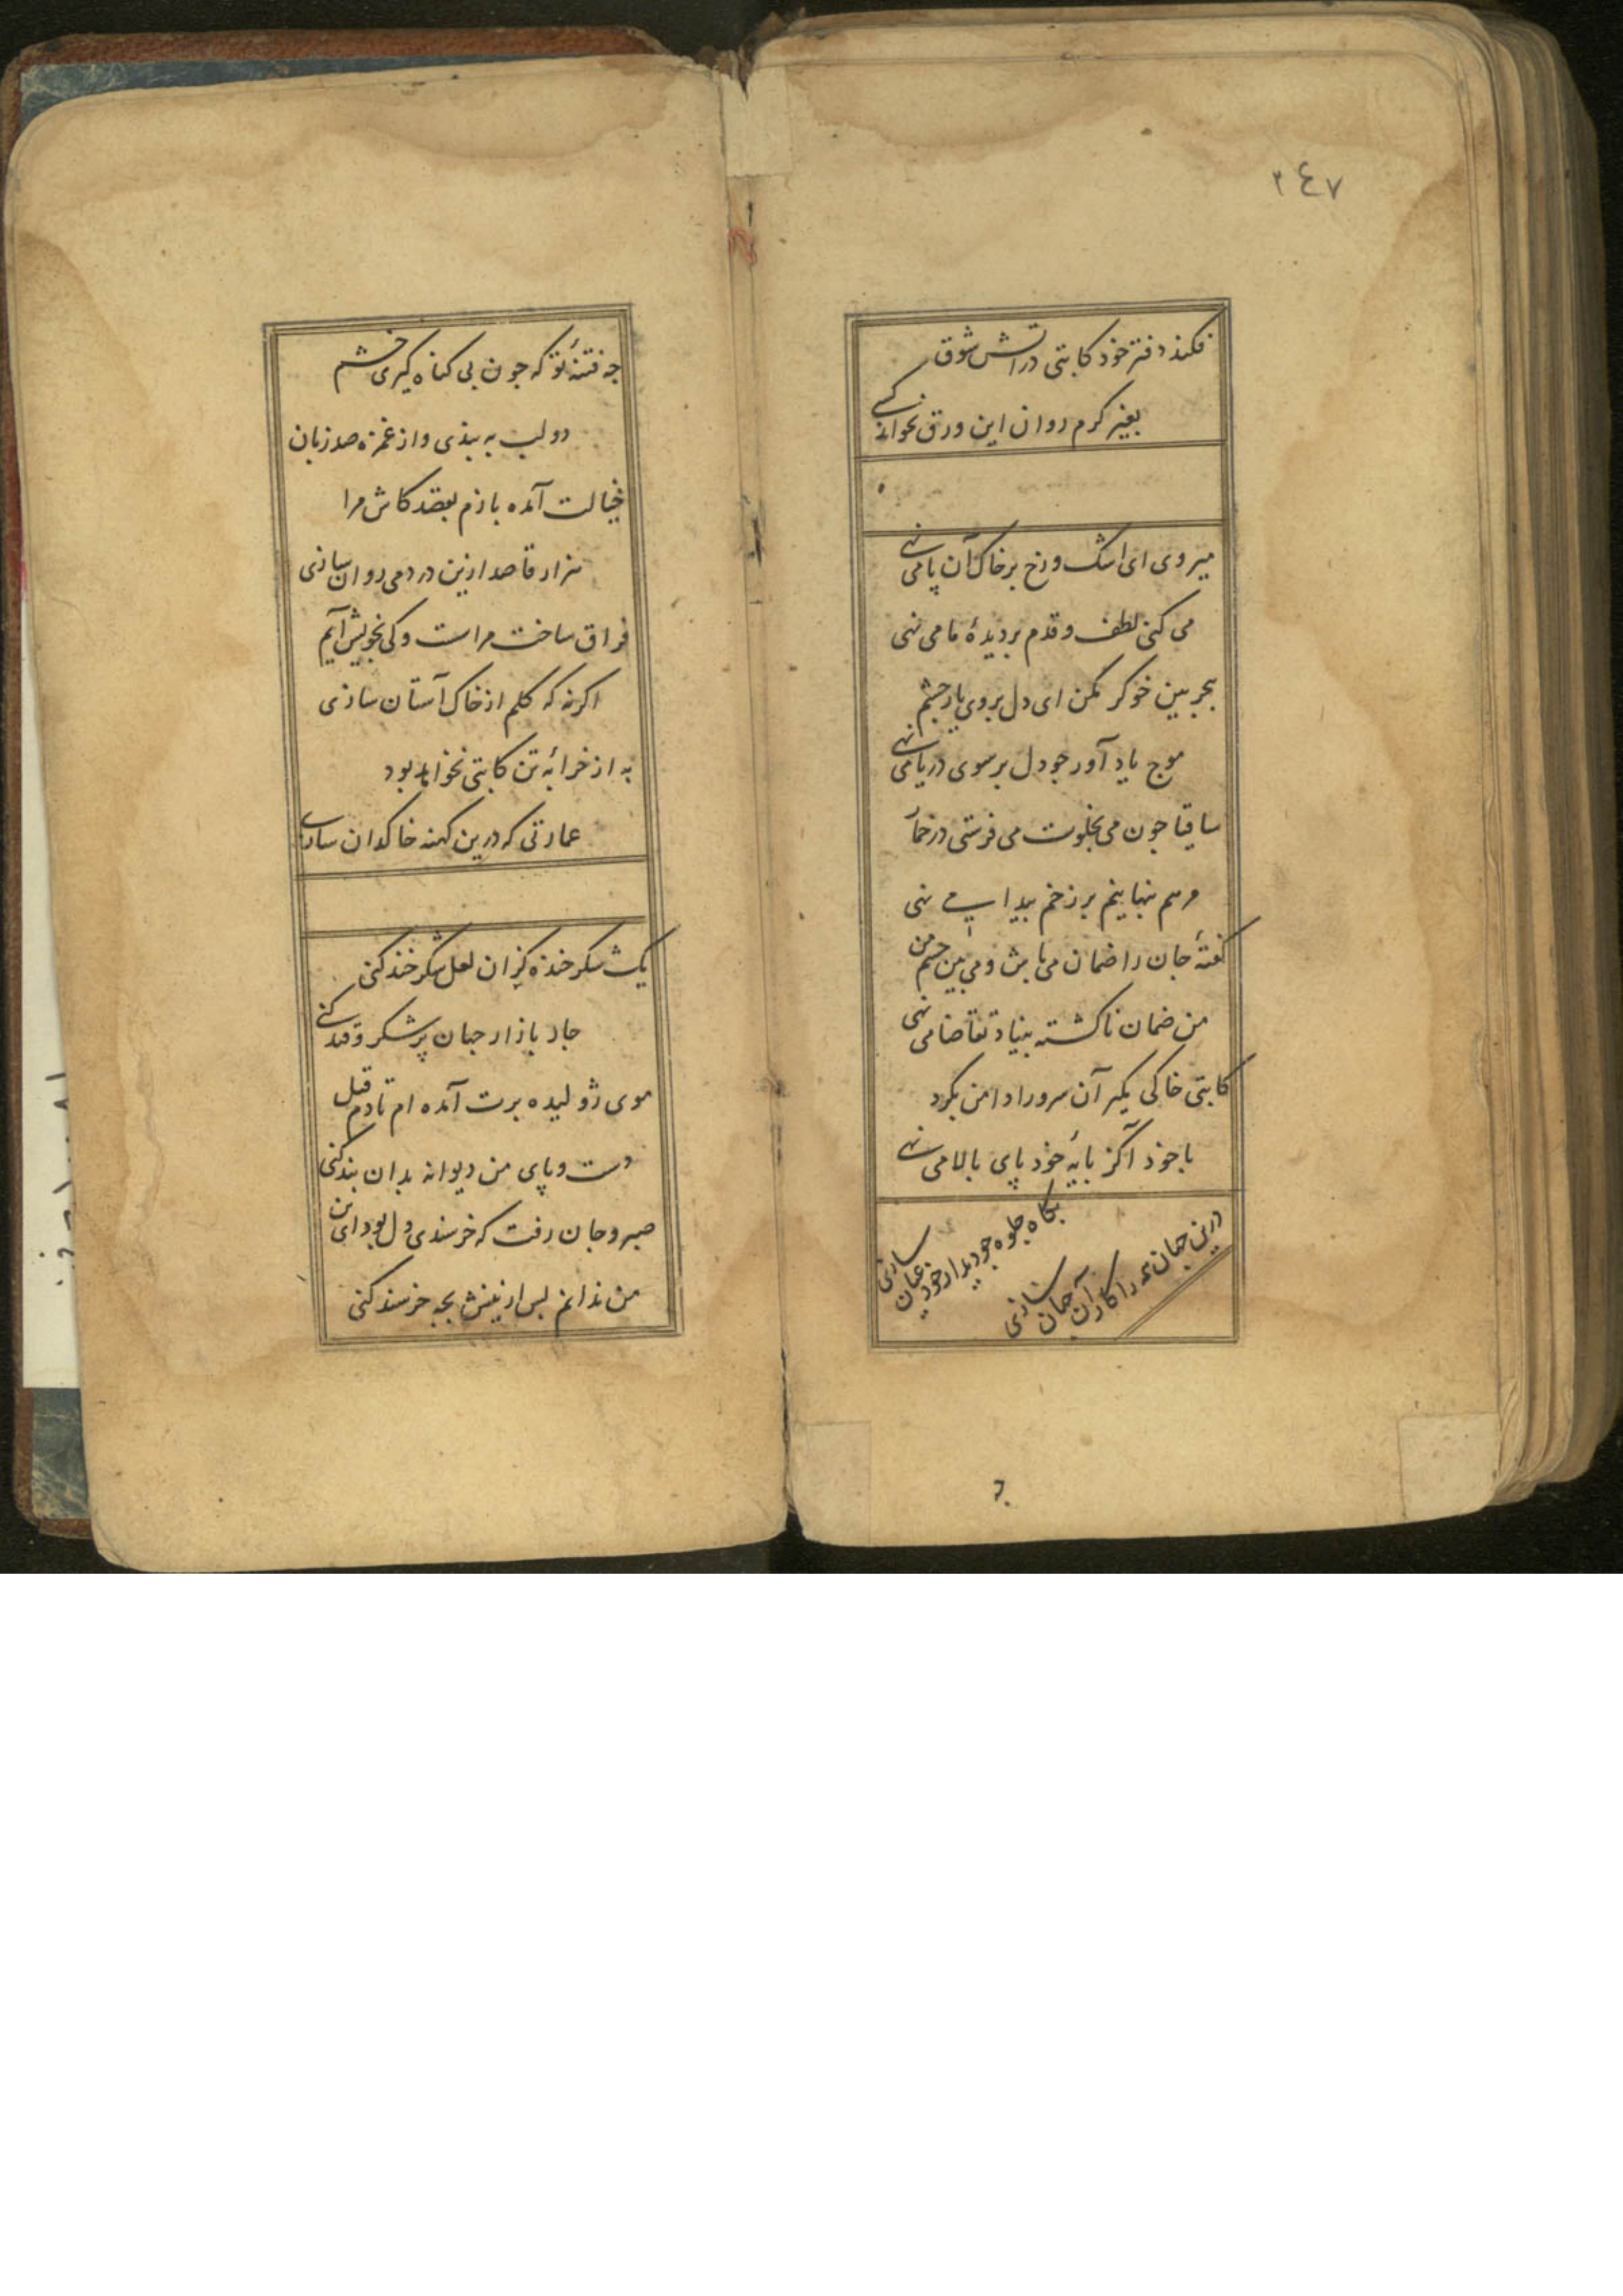 ٢٤٧
فکند دفتر خود کاتبی در آتش شوق
بغیر کرم روان این ورق نخواند کسی
میروی ای اشک و رخ بر خاک آن پا می نهی
می کنی لطف و قدم بر دیدهٔ ما می نهی
خو کر مکن ای دل بروی یار چشم
موج یاد آور جو دل بر سوی دریا می نهی
ساقیا جون می بخلوت می فرستی در خمار
مرهم بر زخم پیدا می نهی
کفتهٔ جان را ضمان می باش و می بین جسم من
من ضمان ناکشته بنیاد تقاضا می نهی
کاتبی خاکی مکیر آن سرو را دامن بکرد
باخود آ کز پایهٔ خود پای بالا می نهی
بکاه جلوه جو دیدار خود عیان سازی
درین جهان همه را کار آن جهان سازی
به
جه فتنهٔ تو که جون بی کناه کیری خشم
دو لب به بندی و از غمزه صد زبان سازی
خیالت آمده بازم بقصد کاش مرا
هزار قاصد ازین در دمی روان سازی
فراق ساخت مراست و کی بخویش آیم
اکر نه که کلم از خاک آستان سازی
به از خرابهٔ تن کاتبی نخواهد بود
عمارتی که درین کهنه خاکدان سازی
یک شکر خنده کز آن لعل شکر خند کنی
جار بازار جهان پر شکر و قند کنی
موی ژولیده برت آمده ام تا دم قتل
دست و پای من دیوانه بدان بند کنی
صبر و جان رفت که خرسندی دل بود ازین
من ندانم پس ازینش بجه خرسند کنی